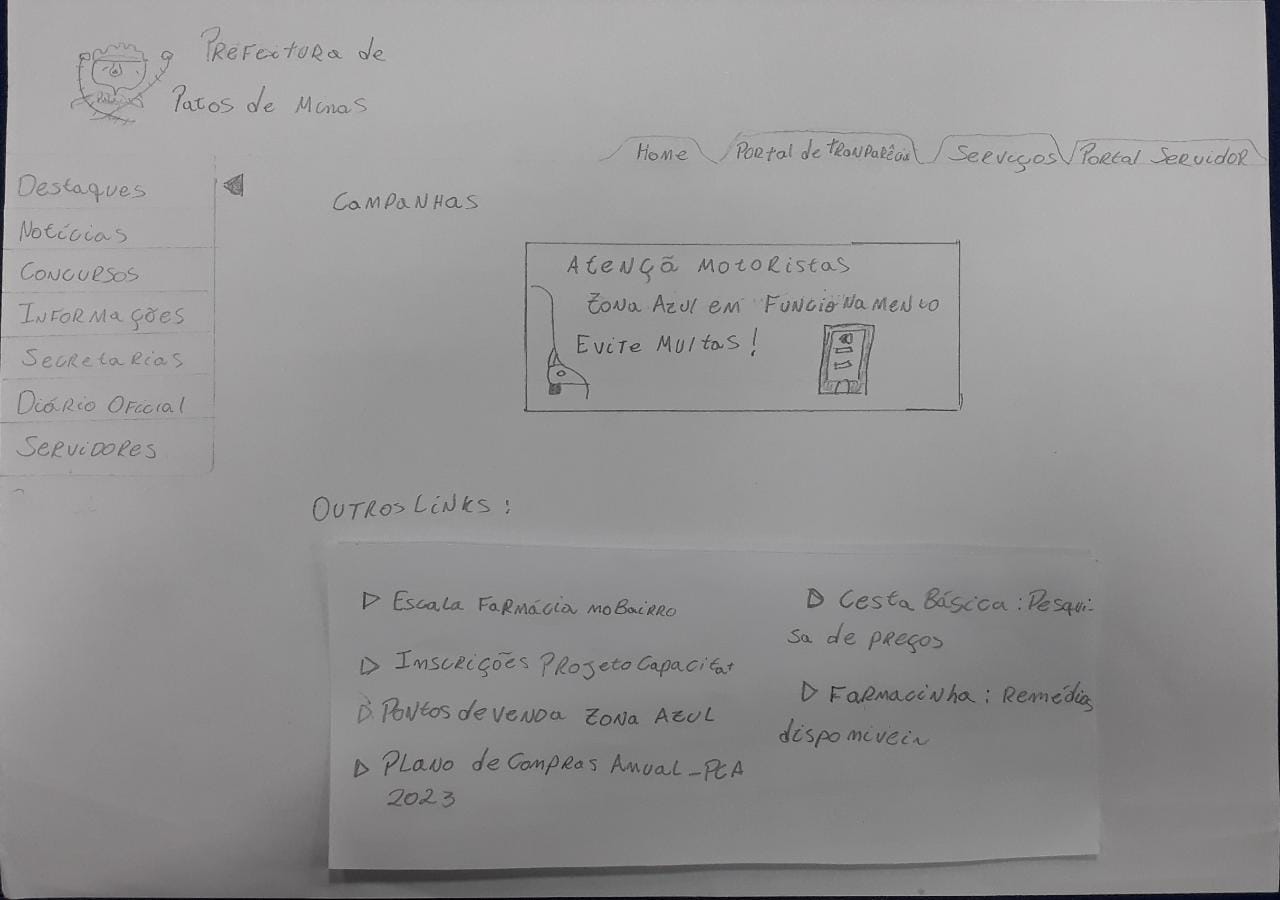 Prefeitura de
Patos de Minas
Home
Portal de Tranparêcia
Serviços
Portal Servidor
Destaques
Notícias
Concursos
Informações
Secretarias
Diário Oficial
Servidores
Campanhas
Atençã Motoristas
Zona Azul em Funcionamento
Evite Multas!
Outros Links:
Escala Farmácia no Bairro
Inscrições Projeto Capacitat
Pontos de venda Zona Azul
Plano de Compras Anual - PCA
2023
Cesta Básica: Pesqui-
sa de preços
Farmacinha: Remédios
disponiveis